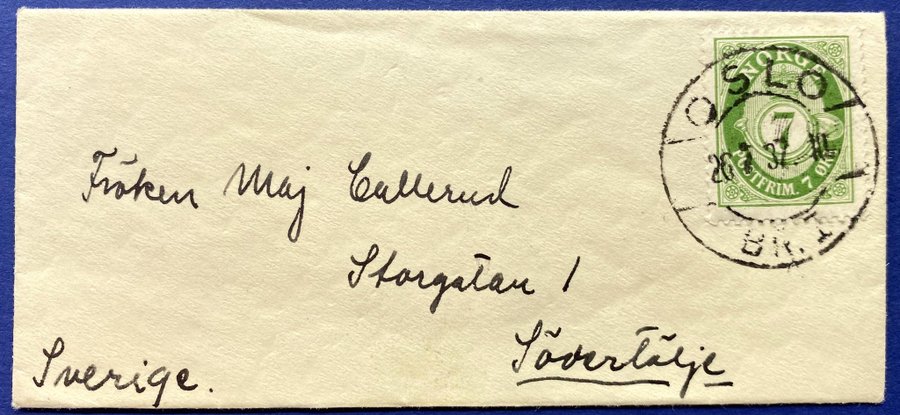 NORGE
7
POSTFRIM. 7 ØRE
OSLO
26 37 - 10
BR. 1
Fröken Maj Callerud
Storgatan 1
Södertälje
Sverige.